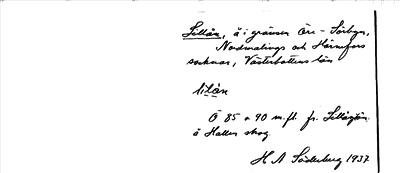 Lillån, å i gränsen Öre - Sörbyn,
Nordmalings och Hörnefors
socknar, Västerbottens län
lilån
Ö 85 o 90 m.fl. fr.
å Hallen skog.
H A Söderberg 1937